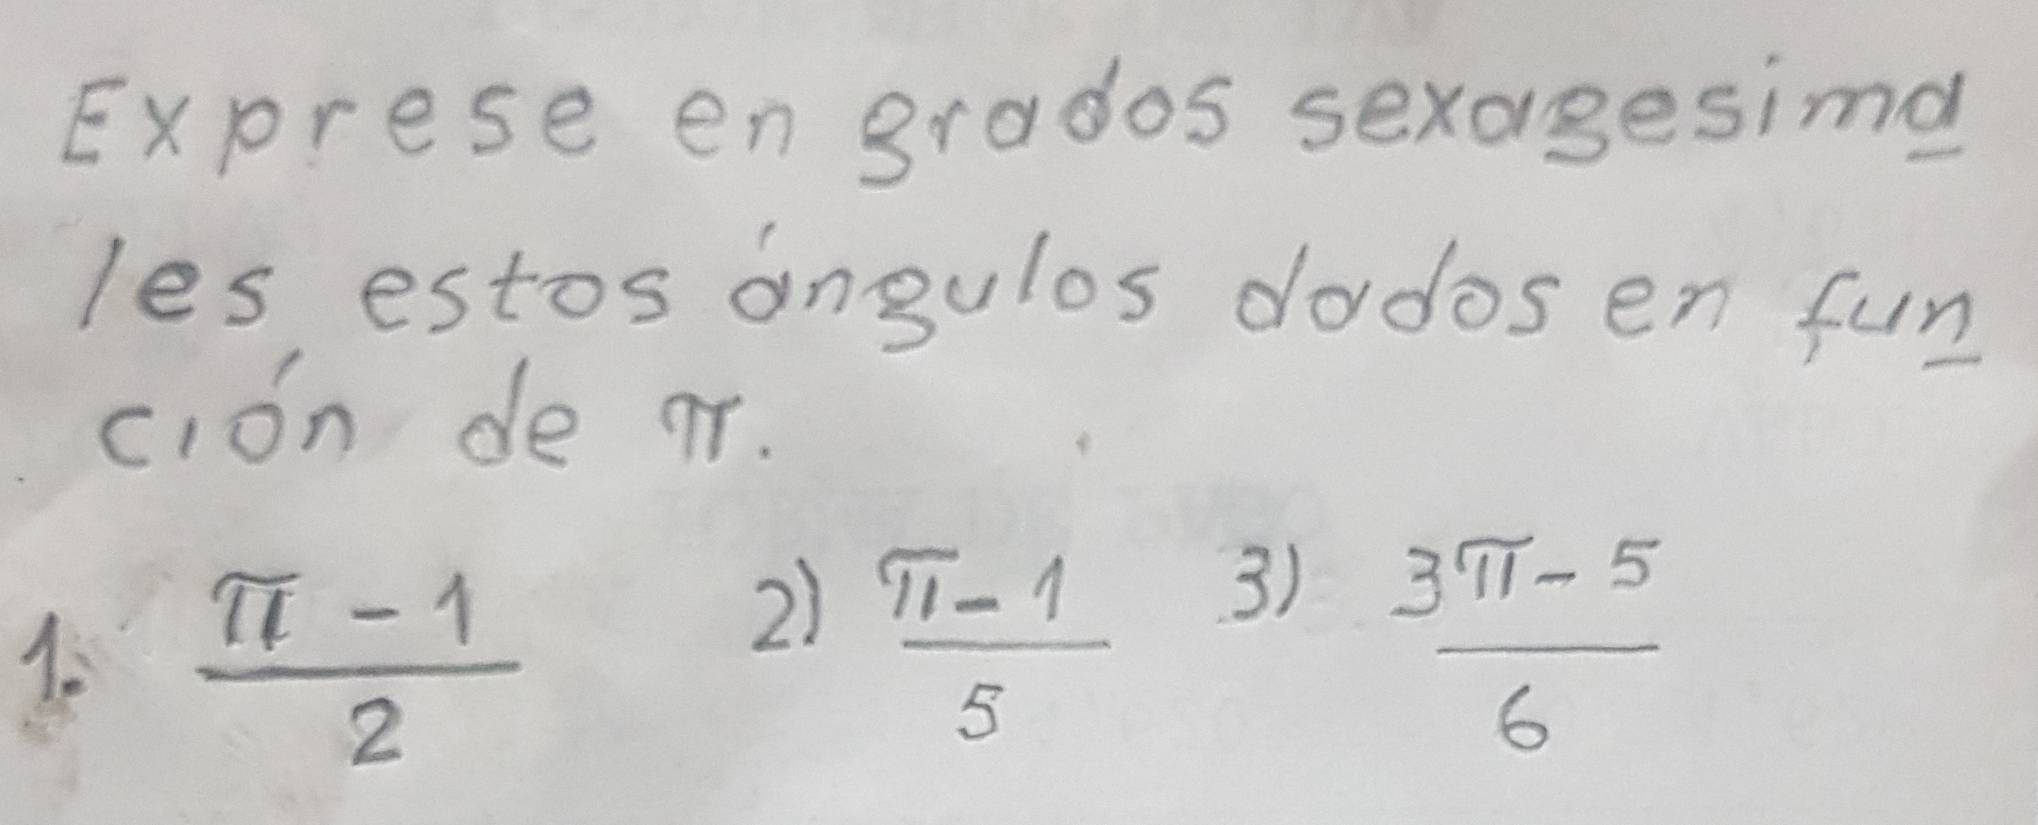 Exprese en grados sexagesima
les estos ángulos dados en fun
ción de π.
1. π - 1 / 2 2) π - 1 / 5 3) 3π - 5 / 6